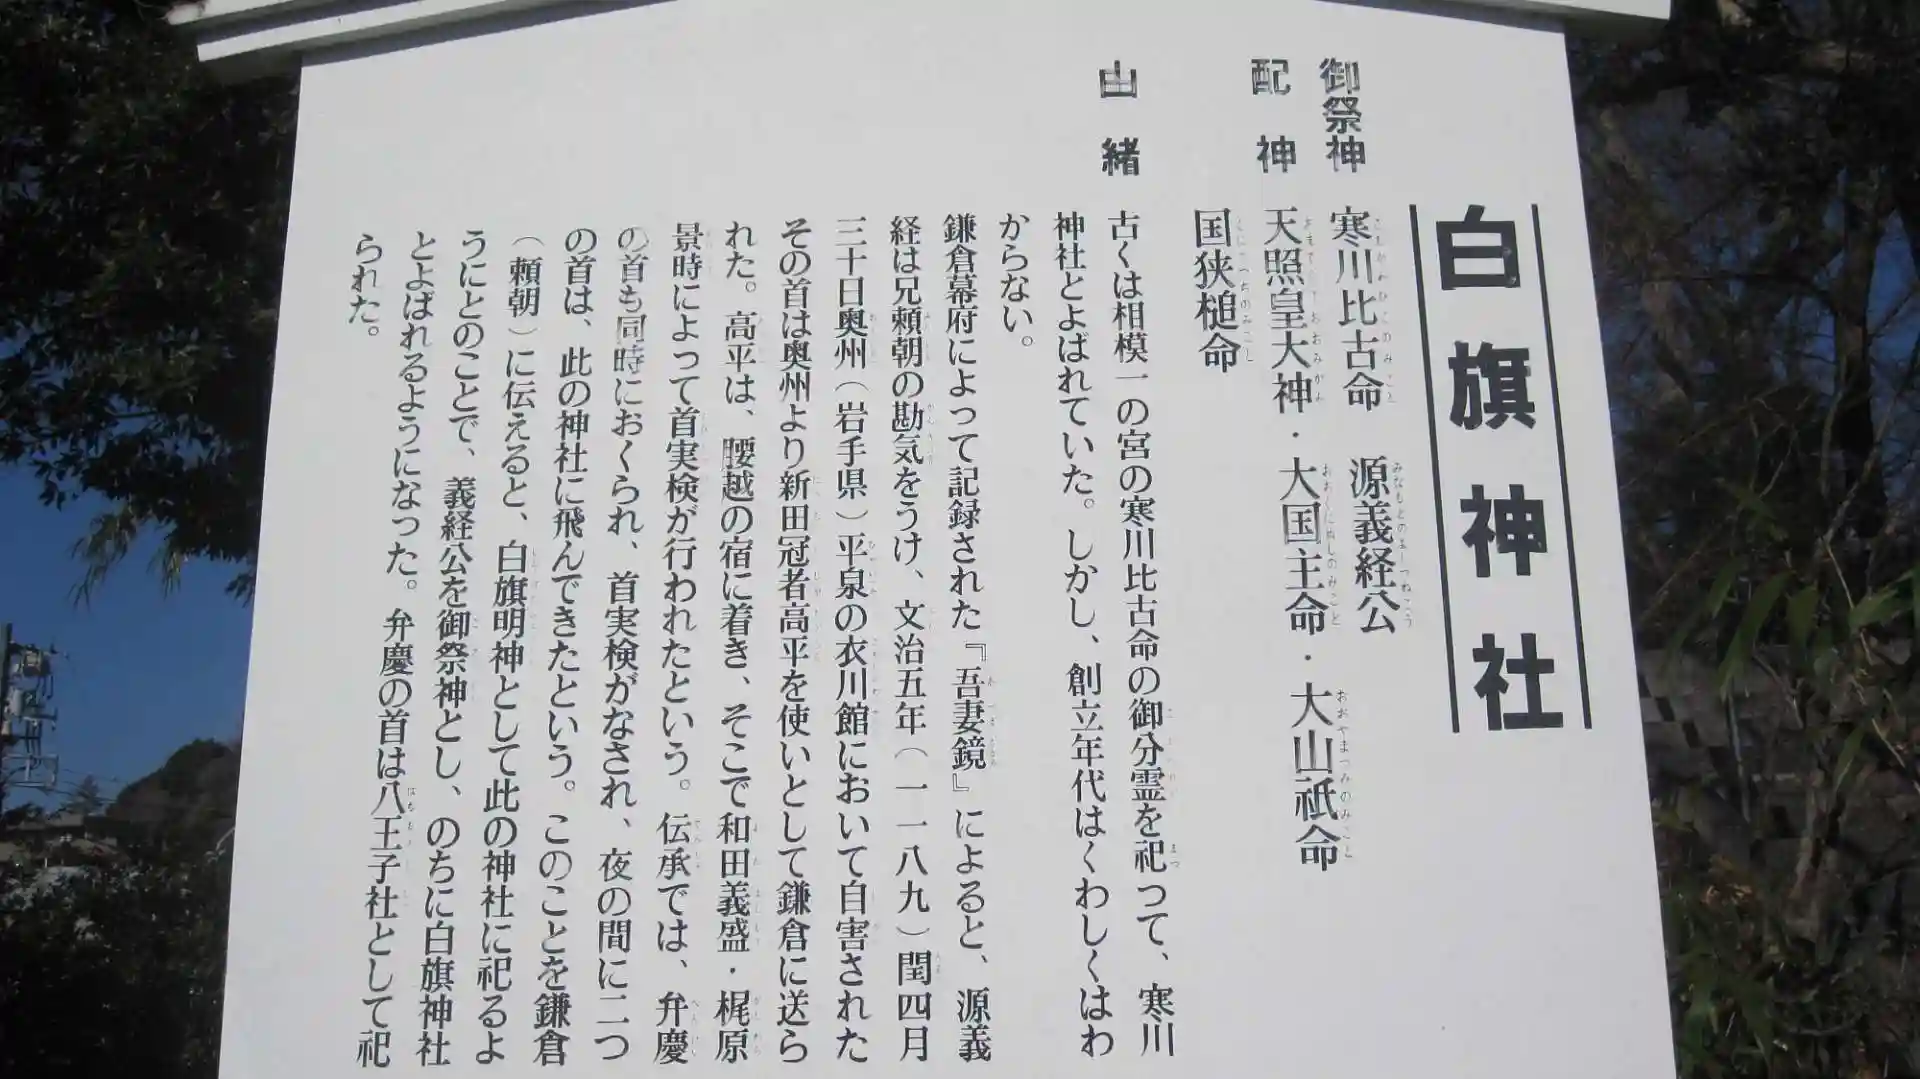 白旗神社
御祭神 寒川比古命 源義経公
配神 天照皇大神・大国主命・大山祇命
国狭槌命
由緒 古くは相模一の宮の寒川比古命の御分霊を祀つて、寒川
神社とよばれていた。しかし、創立年代はくわしくはわ
からない。
鎌倉幕府によって記録された『吾妻鏡』によると、源義
経は兄頼朝の勘気をうけ、文治五年(一一八九)閏四月
三十日奥州(岩手県)平泉の衣川館において自害された
その首は奥州より新田冠者高平を使いとして鎌倉に送ら
れた。高平は、腰越の宿に着き、そこで和田義盛・梶原
景時によって首実検が行われたという。伝承では、弁慶
の首も同時におくられ、首実検がなされ、夜の間に二つ
の首は、此の神社に飛んできたという。このことを鎌倉
(頼朝)に伝えると、白旗明神として此の神社に祀るよ
うにとのことで、義経公を御祭神とし、のちに白旗神社
とよばれるようになった。弁慶の首は八王子社として祀
られた。